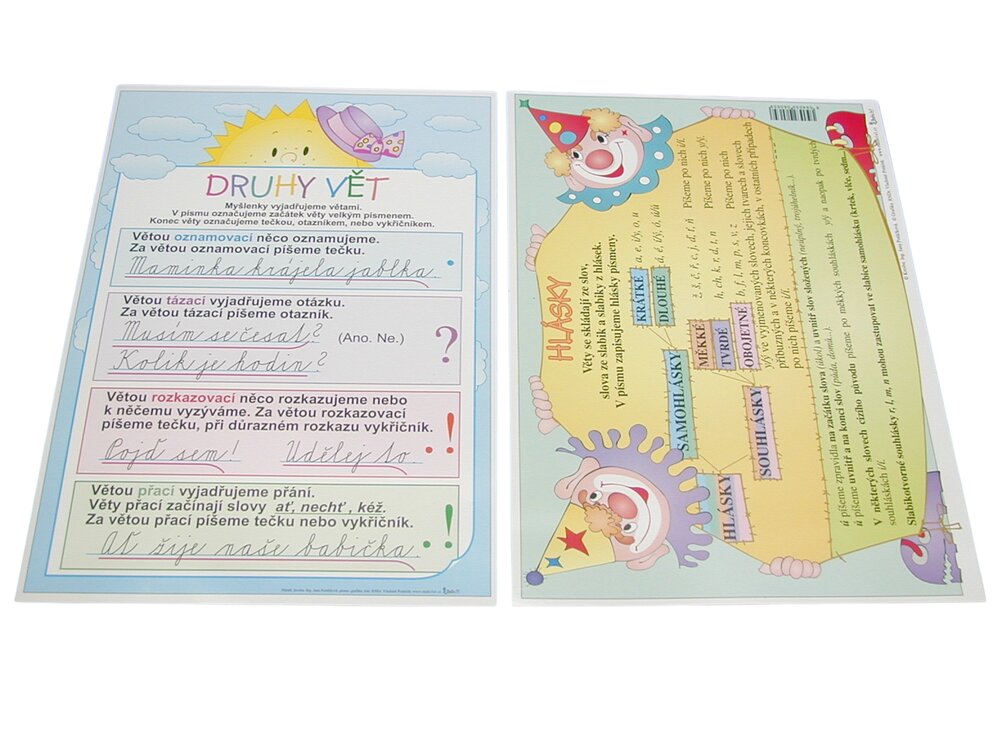 DRUHY VĚT
Myšlenky vyjadřujeme větami.
V písmu označujeme začátek věty velkým písmenem.
Konec věty označujeme tečkou, otazníkem, nebo vykřičníkem.
Větou oznamovací něco oznamujeme.
Za větou oznamovací píšeme tečku.
Maminka krájela jablka.
Větou tázací vyjadřujeme otázku.
Za větou tázací píšeme otazník.
Musím se česat? (Ano. Ne.)
Kolik je hodin?
?
Větou rozkazovací něco rozkazujeme nebo
k něčemu vyzýváme. Za větou rozkazovací
píšeme tečku, při důrazném rozkazu vykřičník.
Pojď sem! Udělej to.
. !
Větou přací vyjadřujeme přání.
Věty přací začínají slovy ať, nechť, kéž.
Za větou přací píšeme tečku nebo vykřičník.
Ať žije naše babička.
. !
HLÁSKY
Věty se skládají ze slov,
slova ze slabik a slabiky z hlásek.
V písmu zapisujeme hlásky písmeny.
HLÁSKY
SAMOHLÁSKY
KRÁTKÉ a, e, i/y, o, u
DLOUHÉ á, é, í/ý, ó, ú/ů
SOUHLÁSKY
MĚKKÉ ž, š, č, ř, c, j, ď, ť, ň Píšeme po nich i/í.
TVRDÉ h, ch, k, r, d, t, n Píšeme po nich y/ý.
OBOJETNÉ b, f, l, m, p, s, v, z Píšeme po nich
y/ý ve vyjmenovaných slovech, jejich tvarech a slovech
příbuzných a v některých koncovkách, v ostatních případech
po nich píšeme i/í.
ú píšeme zpravidla na začátku slova (úkol) a uvnitř slov složených (neúplný, trojúhelník...).
ů píšeme uvnitř a na konci slov (půda, domů...).
V některých slovech cizího původu píšeme po měkkých souhláskách y/ý a naopak po tvrdých
souhláskách i/í.
Slabikotvorné souhlásky r, l, m, n mohou zastupovat ve slabice samohlásku (krtek, vlče, sedm...